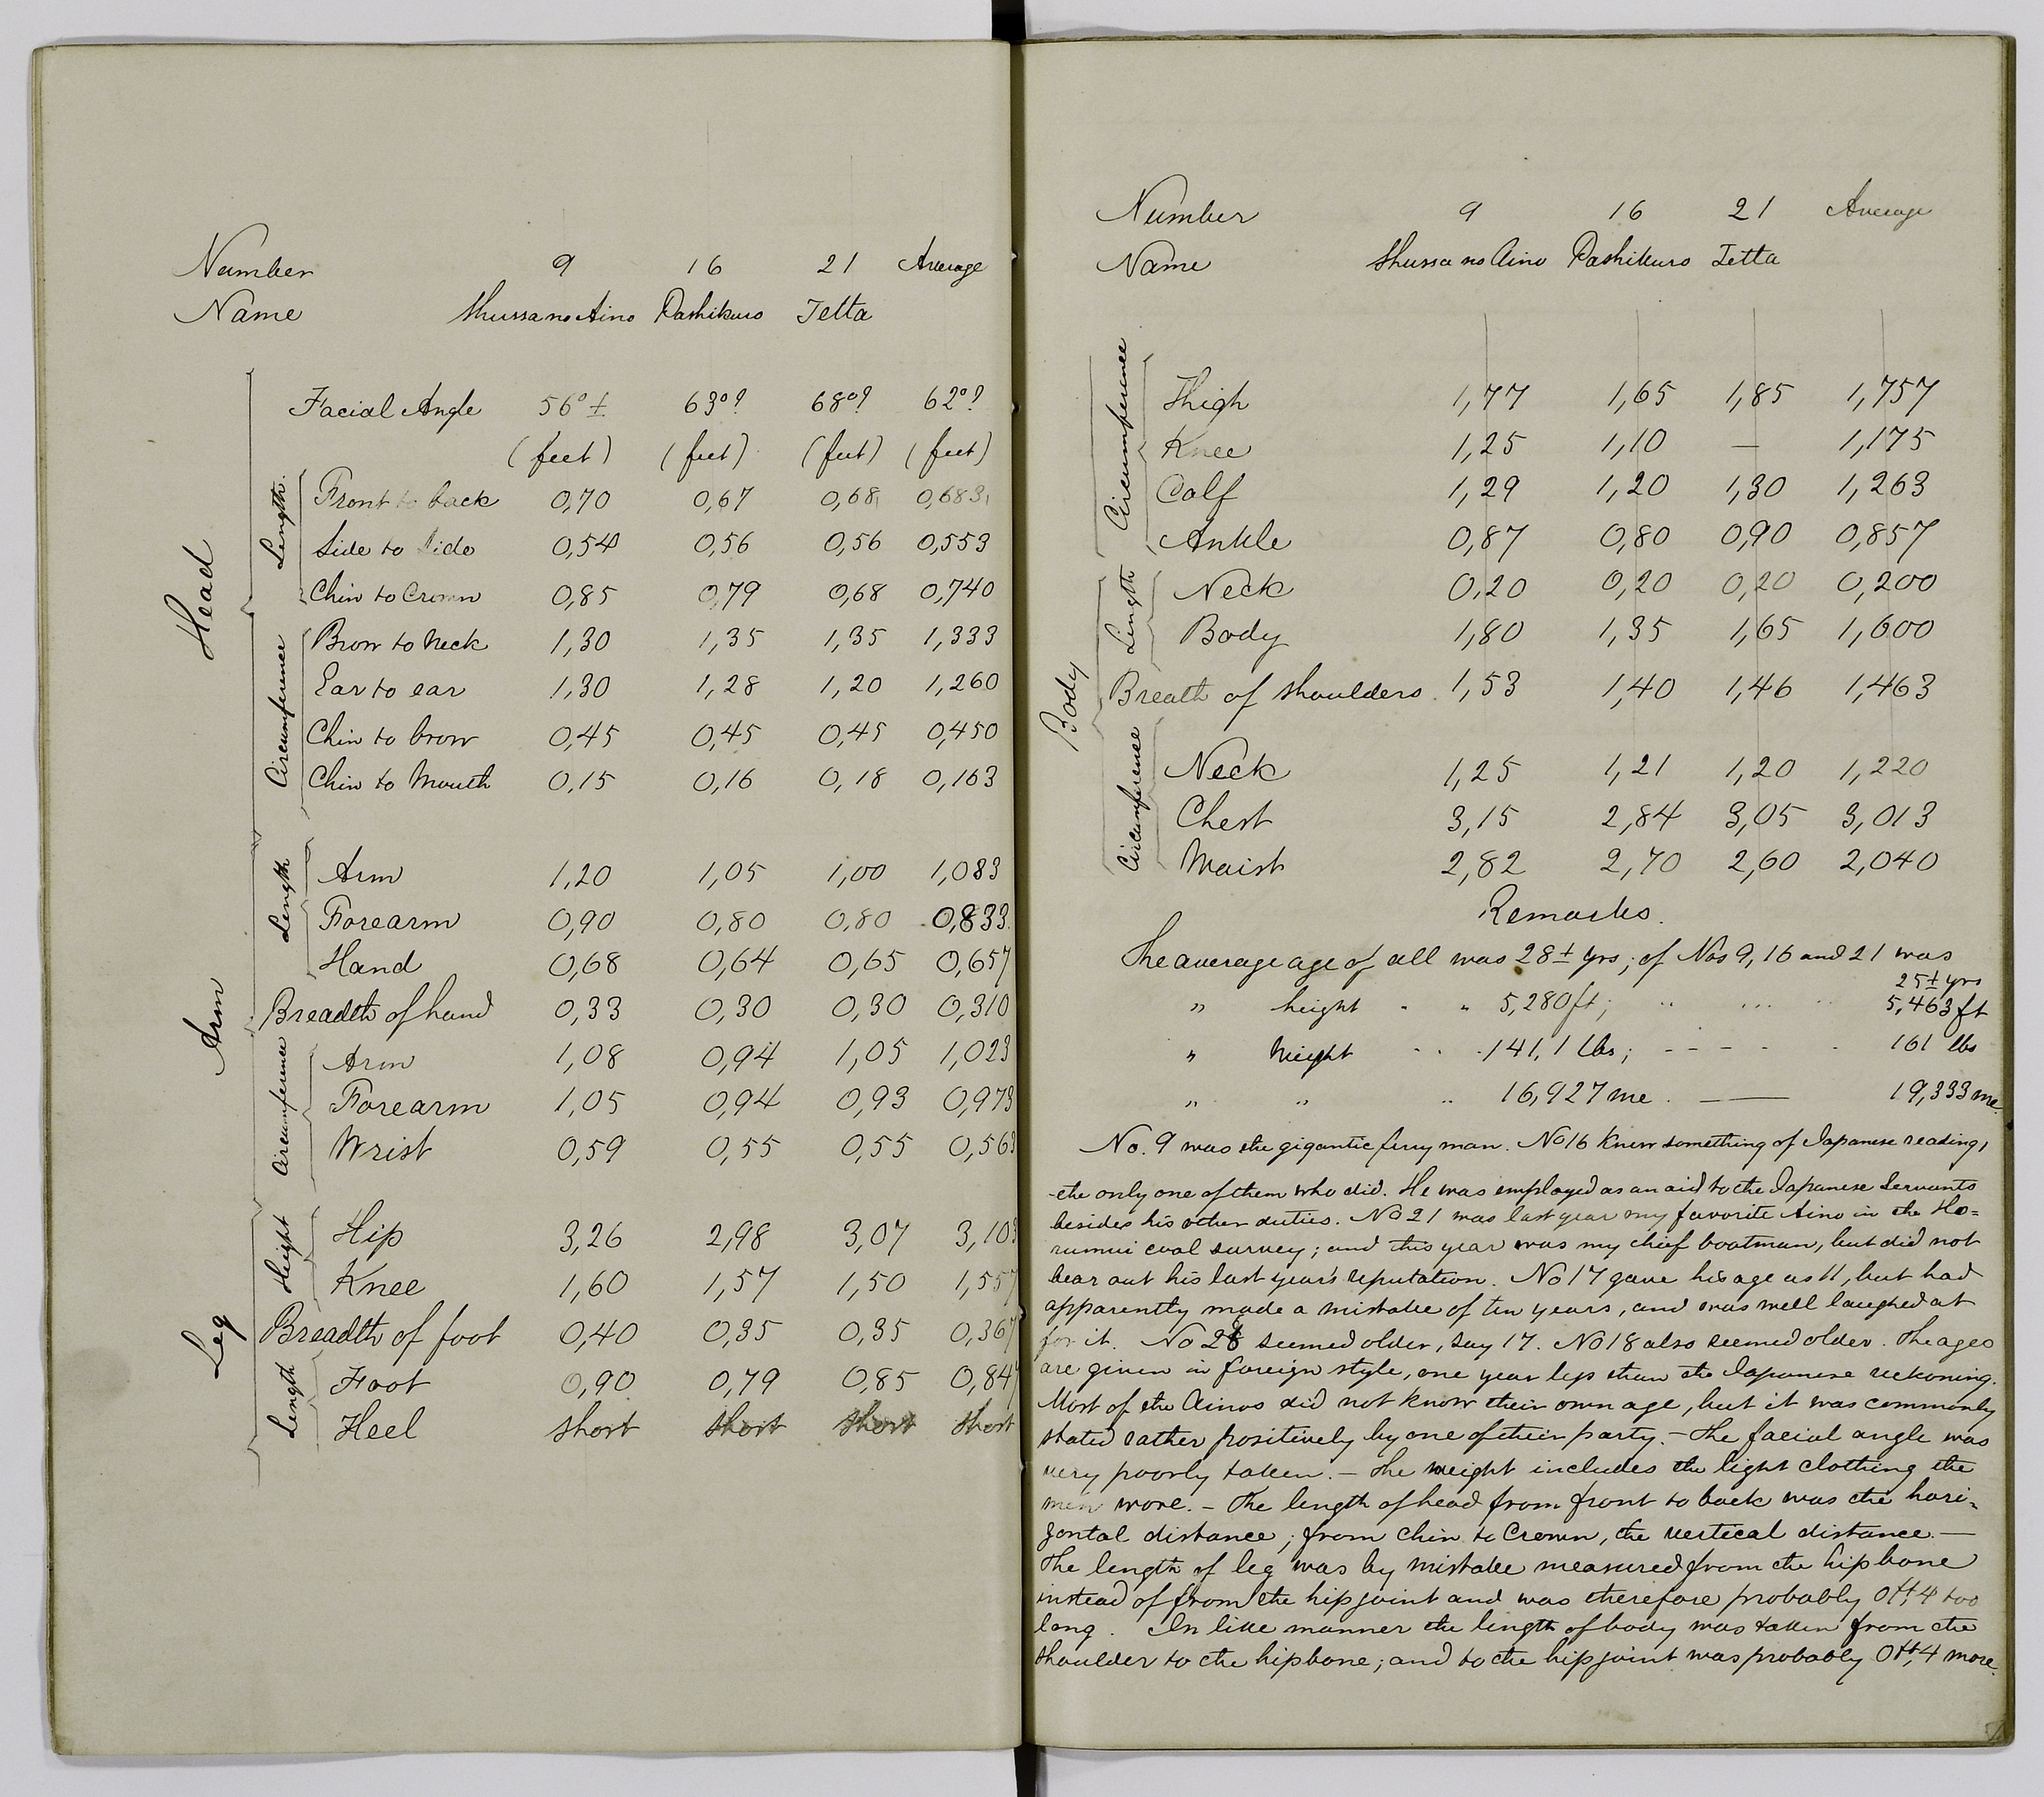 Number 9 16 21 Average
Name Shussa no Aino Pashikuro Tetta
Head
Facial Angle 56° ± 63°? 68°? 62°?
(feet) (feet) (feet) (feet)
Length
Front to back 0,70 0,67 0,68 0,683
Side to Side 0,54 0,56 0,56 0,553
Chin to Crown 0,85 0,79 0,68 0,740
Circumference
Brow to Neck 1,30 1,35 1,35 1,333
Ear to ear 1,30 1,28 1,20 1,260
Chin to brow 0,45 0,45 0,45 0,450
Chin to Mouth 0,15 0,16 0,18 0,163
Arm
Length
Arm 1,20 1,05 1,00 1,083
Forearm 0,90 0,80 0,80 0,833
Hand 0,68 0,64 0,65 0,657
Breadth of hand 0,33 0,30 0,30 0,310
Circumference
Arm 1,08 0,94 1,05 1,023
Forearm 1,05 0,94 0,93 0,973
Wrist 0,59 0,55 0,55 0,563
Leg
Height
Hip 3,26 2,98 3,07 3,103
Knee 1,60 1,57 1,50 1,557
Breadth of foot 0,40 0,35 0,35 0,367
Length
Foot 0,90 0,79 0,85 0,847
Heel short short short short
Number 9 16 21 Average
Name Shussa no Aino Pashikuro Tetta
Circumference
Thigh 1,77 1,65 1,85 1,757
Knee 1,25 1,10 — 1,175
Calf 1,29 1,20 1,30 1,263
Ankle 0,87 0,80 0,90 0,857
Body
Length
Neck 0,20 0,20 0,20 0,200
Body 1,80 1,35 1,65 1,600
Breath of shoulders 1,53 1,40 1,46 1,463
Circumference
Neck 1,25 1,21 1,20 1,220
Chest 3,15 2,84 3,05 3,013
Waist 2,82 2,70 2,60 2,040
Remarks.
The average age of all was 28± yrs; of Nos 9, 16 and 21 was
25± yrs
" height " " 5,280 ft; " " " 5,463 ft
" Weight " " 141,1 lbs; - - - - 161 lbs
" " " 16,927 me. —— 19,333 me.
No. 9 was the gigantic ferry man. No 16 knew something of Japanese reading,
the only one of them who did. He was employed as an aid to the Japanese Servants
besides his other duties. No 21 was last year my favorite Aino in the Ho=
rumui coal survey; and this year was my chief boatman, but did not
bear out his last year's reputation. No 17 gave his age as 11, but had
apparently made a mistake of ten years, and was well laughed at
for it. No 28 seemed older, say 17. No 18 also seemed older. The ages
are given in foreign style, one year less than the Japanese reckoning.
Most of the Ainos did not know their own age, but it was commonly
stated rather positively by one of their party. — The facial angle was
very poorly taken. — The weight includes the light clothing the
men wore. — The length of head from front to back was the hori=
zontal distance; from Chin to Crown, the vertical distance. —
The length of leg was by mistake measured from the hip bone
instead of from the hip joint and was therefore probably 0ft,4 too
long. In like manner the length of body was taken from the
shoulder to the hipbone; and to the hip joint was probably 0ft,4 more.